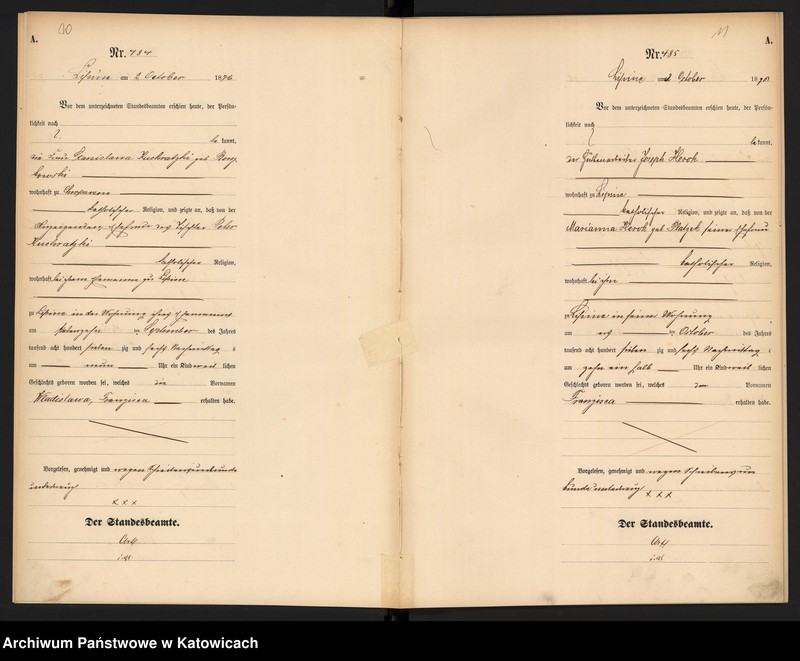 10
A.
Nr. 484
Lipine am 2 October 1876
Vor dem unterzeichneten Standesbeamten erschien heute, der Persön-
lichkeit nach
be kannt,
die Frau Stanislawa Kucharatzki geb
wohnhaft zu
katholischer Religion, und zeigte an, daß von der
Ehefrau des Peter
katholischer Religion,
wohnhaft bei ihrem Ehemanne zu Lipine
zu Lipine in der Wohnung ihres Ehemannes
am September des Jahres
tausend acht hundert sieben zig und sechs Nachmittag s
um neun Uhr ein Kind weib lichen
Geschlechts geboren worden sei, welches die Vornamen
Wladislawa, Franzisca erhalten habe.
Vorgelesen, genehmigt und wegen Schreibensunkunde
unterkreuzt
x x x
Der Standesbeamte.
11
A.
Nr. 485
Lipine October
Vor dem unterzeichneten Standesbeamten erschien heute, der Persön-
lichkeit nach
be kannt,
der Hüttenarbeiter Joseph Kerok
wohnhaft zu Lipine
katholischer Religion, und zeigte an, daß von der
Marianna Kerok geb seiner Ehefrau
katholischer Religion,
wohnhaft bei ihm
zu Lipine in seiner Wohnung
am October des Jahres
tausend acht hundert sieben zig und sechs Nachmittag s
um zehn ein halb Uhr ein Kind weib lichen
Geschlechts geboren worden sei, welches den Vornamen
Franzisca erhalten habe.
Vorgelesen, genehmigt und wegen Schreibensun
kunde unterkreuzt
x x x
Der Standesbeamte.
Archiwum Państwowe w Katowicach